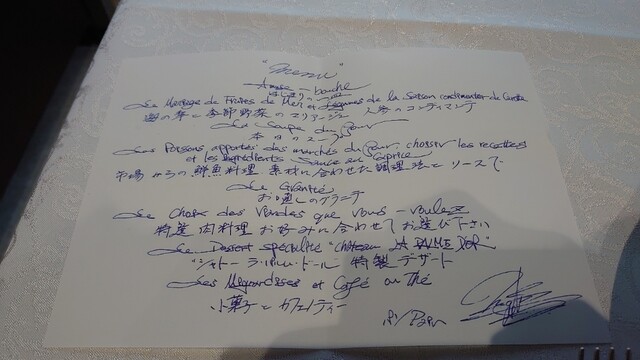 "Menu"
Amuse-bouche
はじまりの一品
Le Mariage de Fruits de Mer et Légumes de la Saison condimenter de Carotte
海の幸と季節野菜のマリアージュ 人参のコンディマンテ
La Soupe du Jour
本日のスープ
Les Poissons apportés des marchés du Jour, choisir les recettes
et les ingrédients Sauce au Caprice
市場からの鮮魚料理 素材に合わせた調理法とソースで
Le Granité
お口直しのグラニテ
Le Choix des Viandes que vous-voulez
特選肉料理 お好みに合わせてお選び下さい
Le Dessert spécialité "Château LA PALME D'OR"
"シャトー・ラ・パルム・ドール" 特製デザート
Les Mignardises et Café ou Thé
小菓子とカフェ/ティー